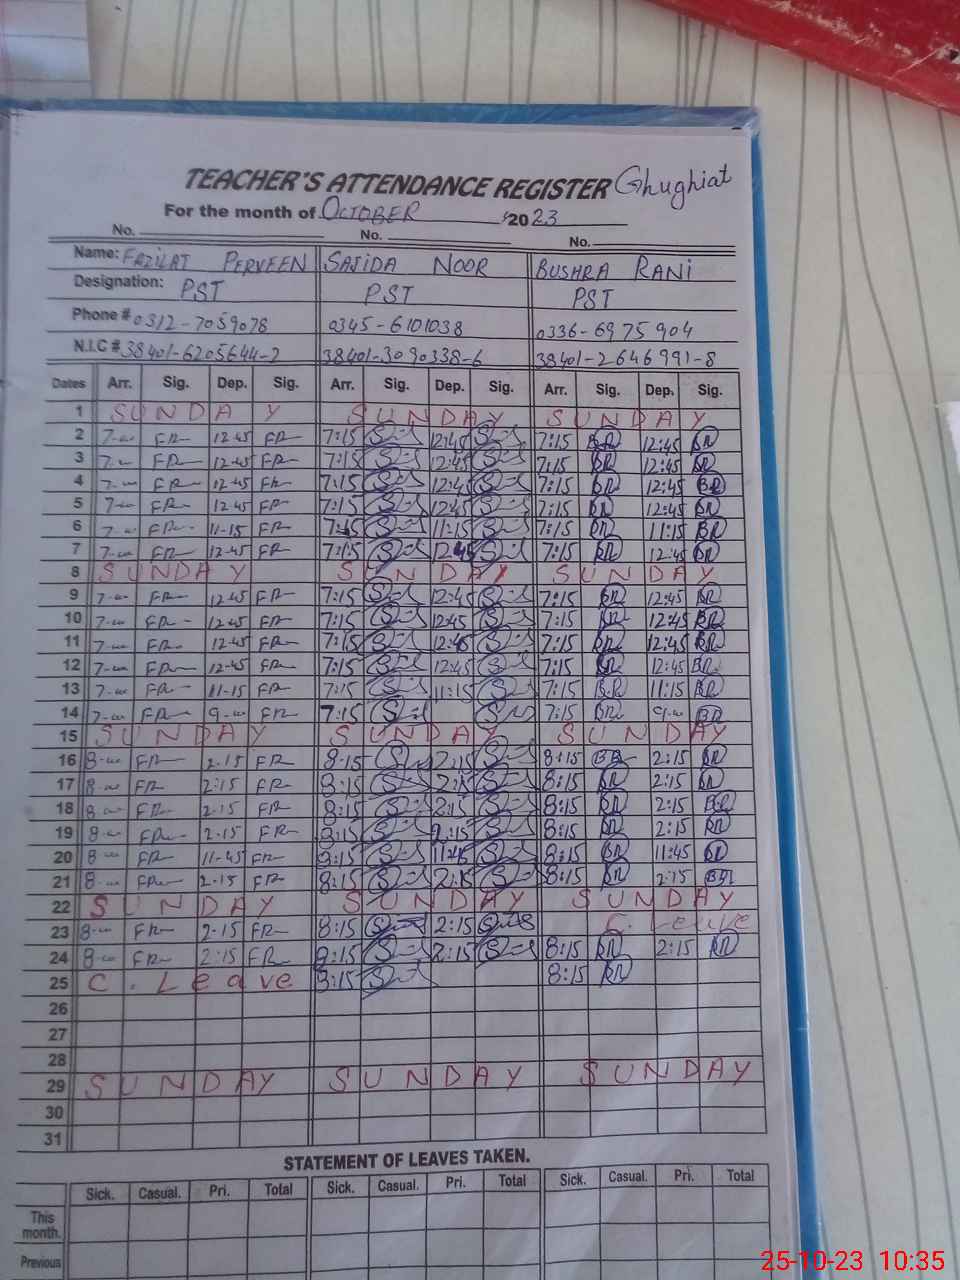 TEACHER'S ATTENDANCE REGISTER Ghughiat
For the month of OCTOBER 2023
No. No. No.
Name: FAZILAT PERVEEN SAJIDA NOOR BUSHRA RANI
Designation: PST PST PST
Phone # 0312-7059078 0345-6101038 0336-6975904
N.I.C # 38401-6205644-2 38401-3090338-6 38401-2646991-8
Dates Arr. Sig. Dep. Sig. Arr. Sig. Dep. Sig. Arr. Sig. Dep. Sig.
1 SUNDAY SUNDAY SUNDAY
2 FR 12-45 FR 7:15 12:45 7:15 BR 12:45 BR
3 FR 12-45 FR 7:15 12:45 7:15 BR 12:45 BR
4 FR 12-45 FR 7:15 12:45 7:15 BR 12:45 BR
5 FR 12-45 FR 7:15 12:45 7:15 BR 12:45 BR
6 FR 11-15 FR 7:15 11:15 7:15 BR 11:15 BR
7 FR 12-45 FR 7:15 12:45 7:15 BR 12:45 BR
8 SUNDAY SUNDAY SUNDAY
9 FR 12-45 FR 7:15 12:45 7:15 BR 12:45 BR
10 FR 12-45 FR 7:15 12:45 7:15 BR 12:45 BR
11 FR 12-45 FR 7:15 12:45 7:15 BR 12:45 BR
12 FR 12-45 FR 7:15 12:45 7:15 BR 12:45 BR
13 FR 11-15 FR 7:15 11:15 7:15 BR 11:15 BR
14 FR FR 7:15 7:15 BR BR
15 SUNDAY SUNDAY SUNDAY
16 FR 2-15 FR 8:15 2:15 8:15 BR 2:15 BR
17 FR 2-15 FR 8:15 2:15 8:15 BR 2:15 BR
18 FR 2-15 FR 8:15 2:15 8:15 BR 2:15 BR
19 FR 2-15 FR 8:15 2:15 8:15 BR 2:15 BR
20 FR 11-45 FR 8:15 11:45 8:15 BR 11:45 BR
21 FR 2-15 FR 8:15 2:15 8:15 BR 2:15 BR
22 SUNDAY SUNDAY SUNDAY
23 FR 2-15 FR 8:15 2:15 C. Leave
24 FR 2:15 FR 8:15 2:15 8:15 BR 2:15 BR
25 C. Leave 8:15 8:15 BR
26
27
28
29 SUNDAY SUNDAY SUNDAY
30
31
STATEMENT OF LEAVES TAKEN.
Sick. Casual. Pri. Total Sick. Casual. Pri. Total Sick. Casual. Pri. Total
This
month.
Previous
25-10-23 10:35